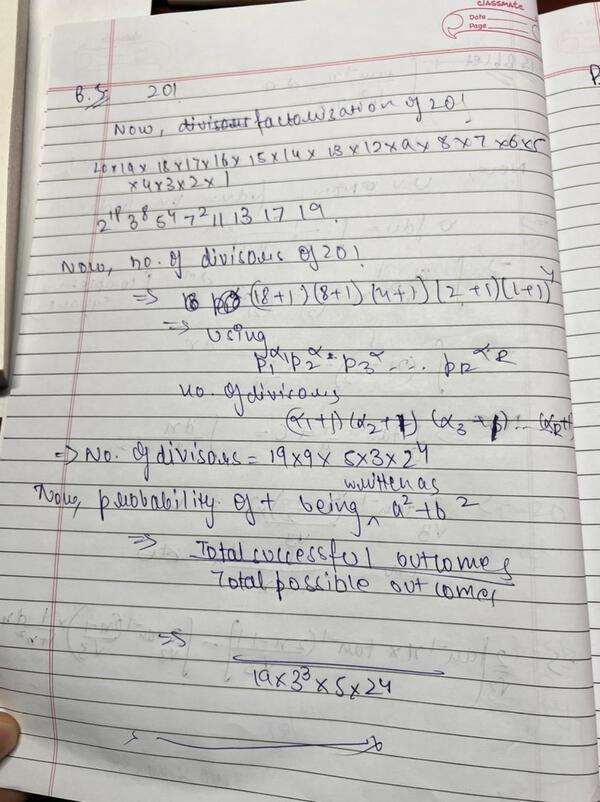 classmate
Date
Page
20!
Now, factorization of 20!
20×19× 18×17×16× 15×14× 13×12×9× 8×7×6×5
×4×3×2×1
2^18 3^8 5^4 7^2 11 13 17 19.
Now, no. of divisors of 20!
⇒ (18+1)(8+1)(4+1)(2+1)(1+1)^4
⇒ Using
p1^α1 p2^α2 p3^α ... pR^αR
no. of divisors
(α1+1)(α2+1)(α3+1)...(αR+1)
⇒ No. of divisors = 19×9×5×3×2^4
written as
Now, probability of t being ^ a²+b²
⇒ Total successful outcomes
Total possible outcomes
⇒
19×3³×5×24